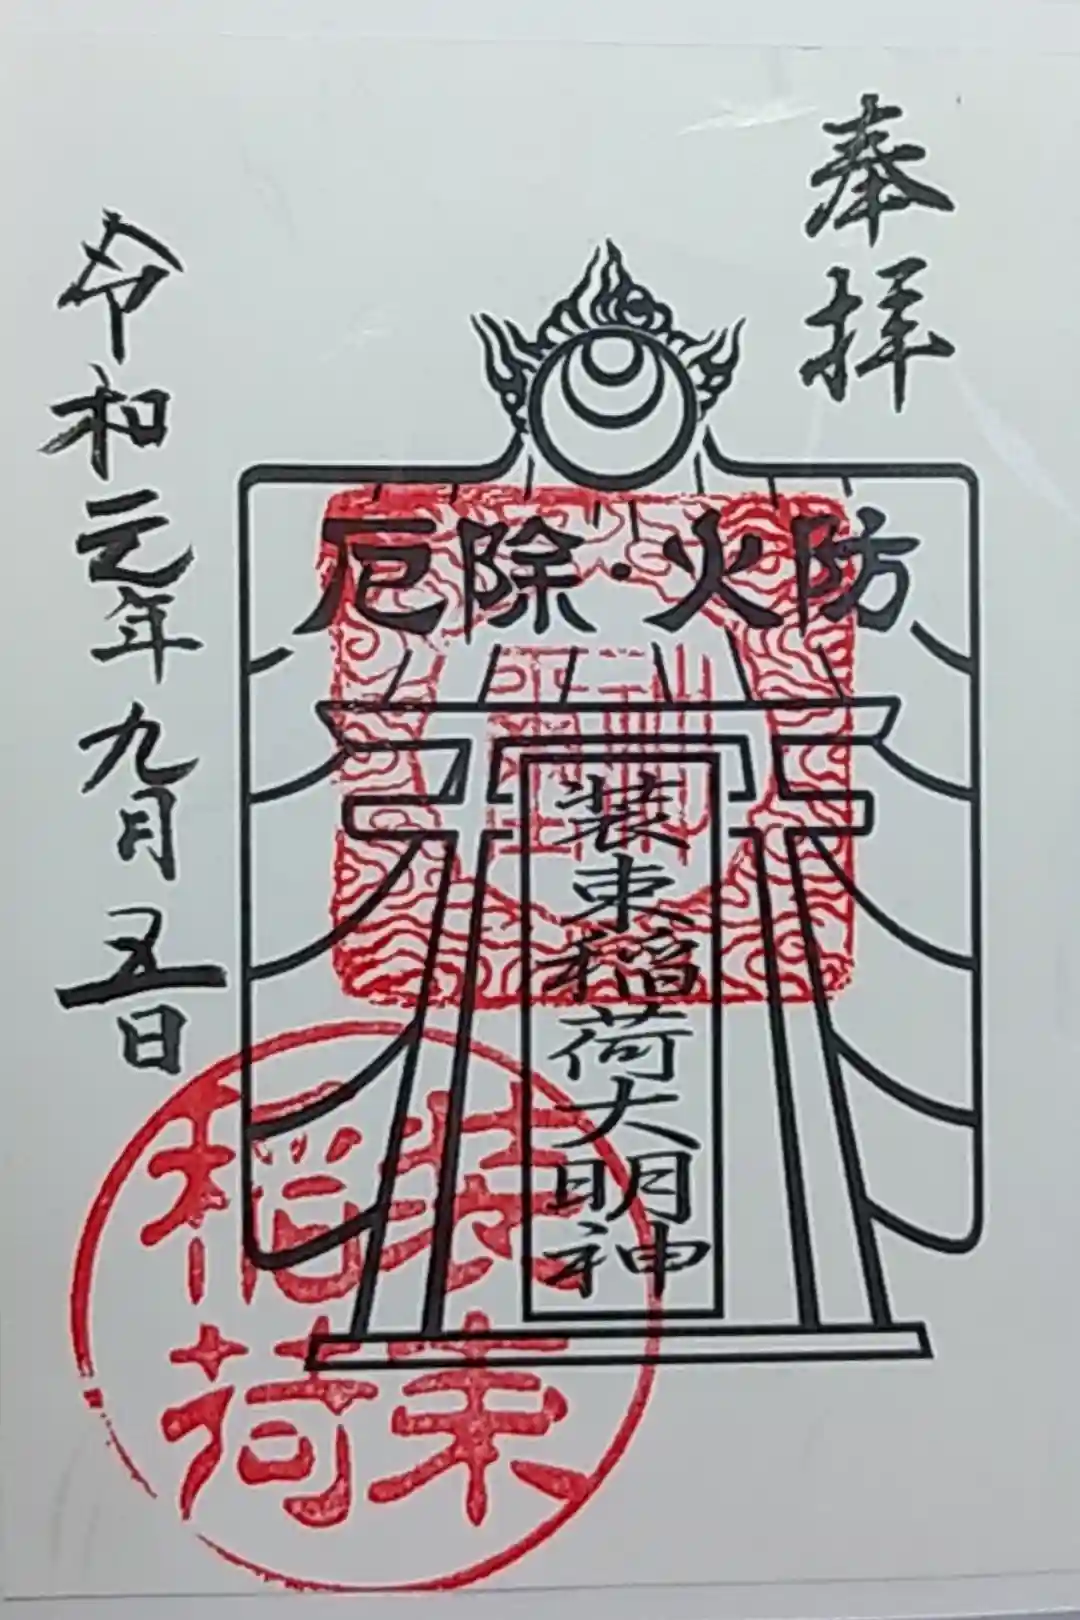 奉拝
厄除・火防
装束稲荷大明神
令和元年九月五日
装束
稲荷